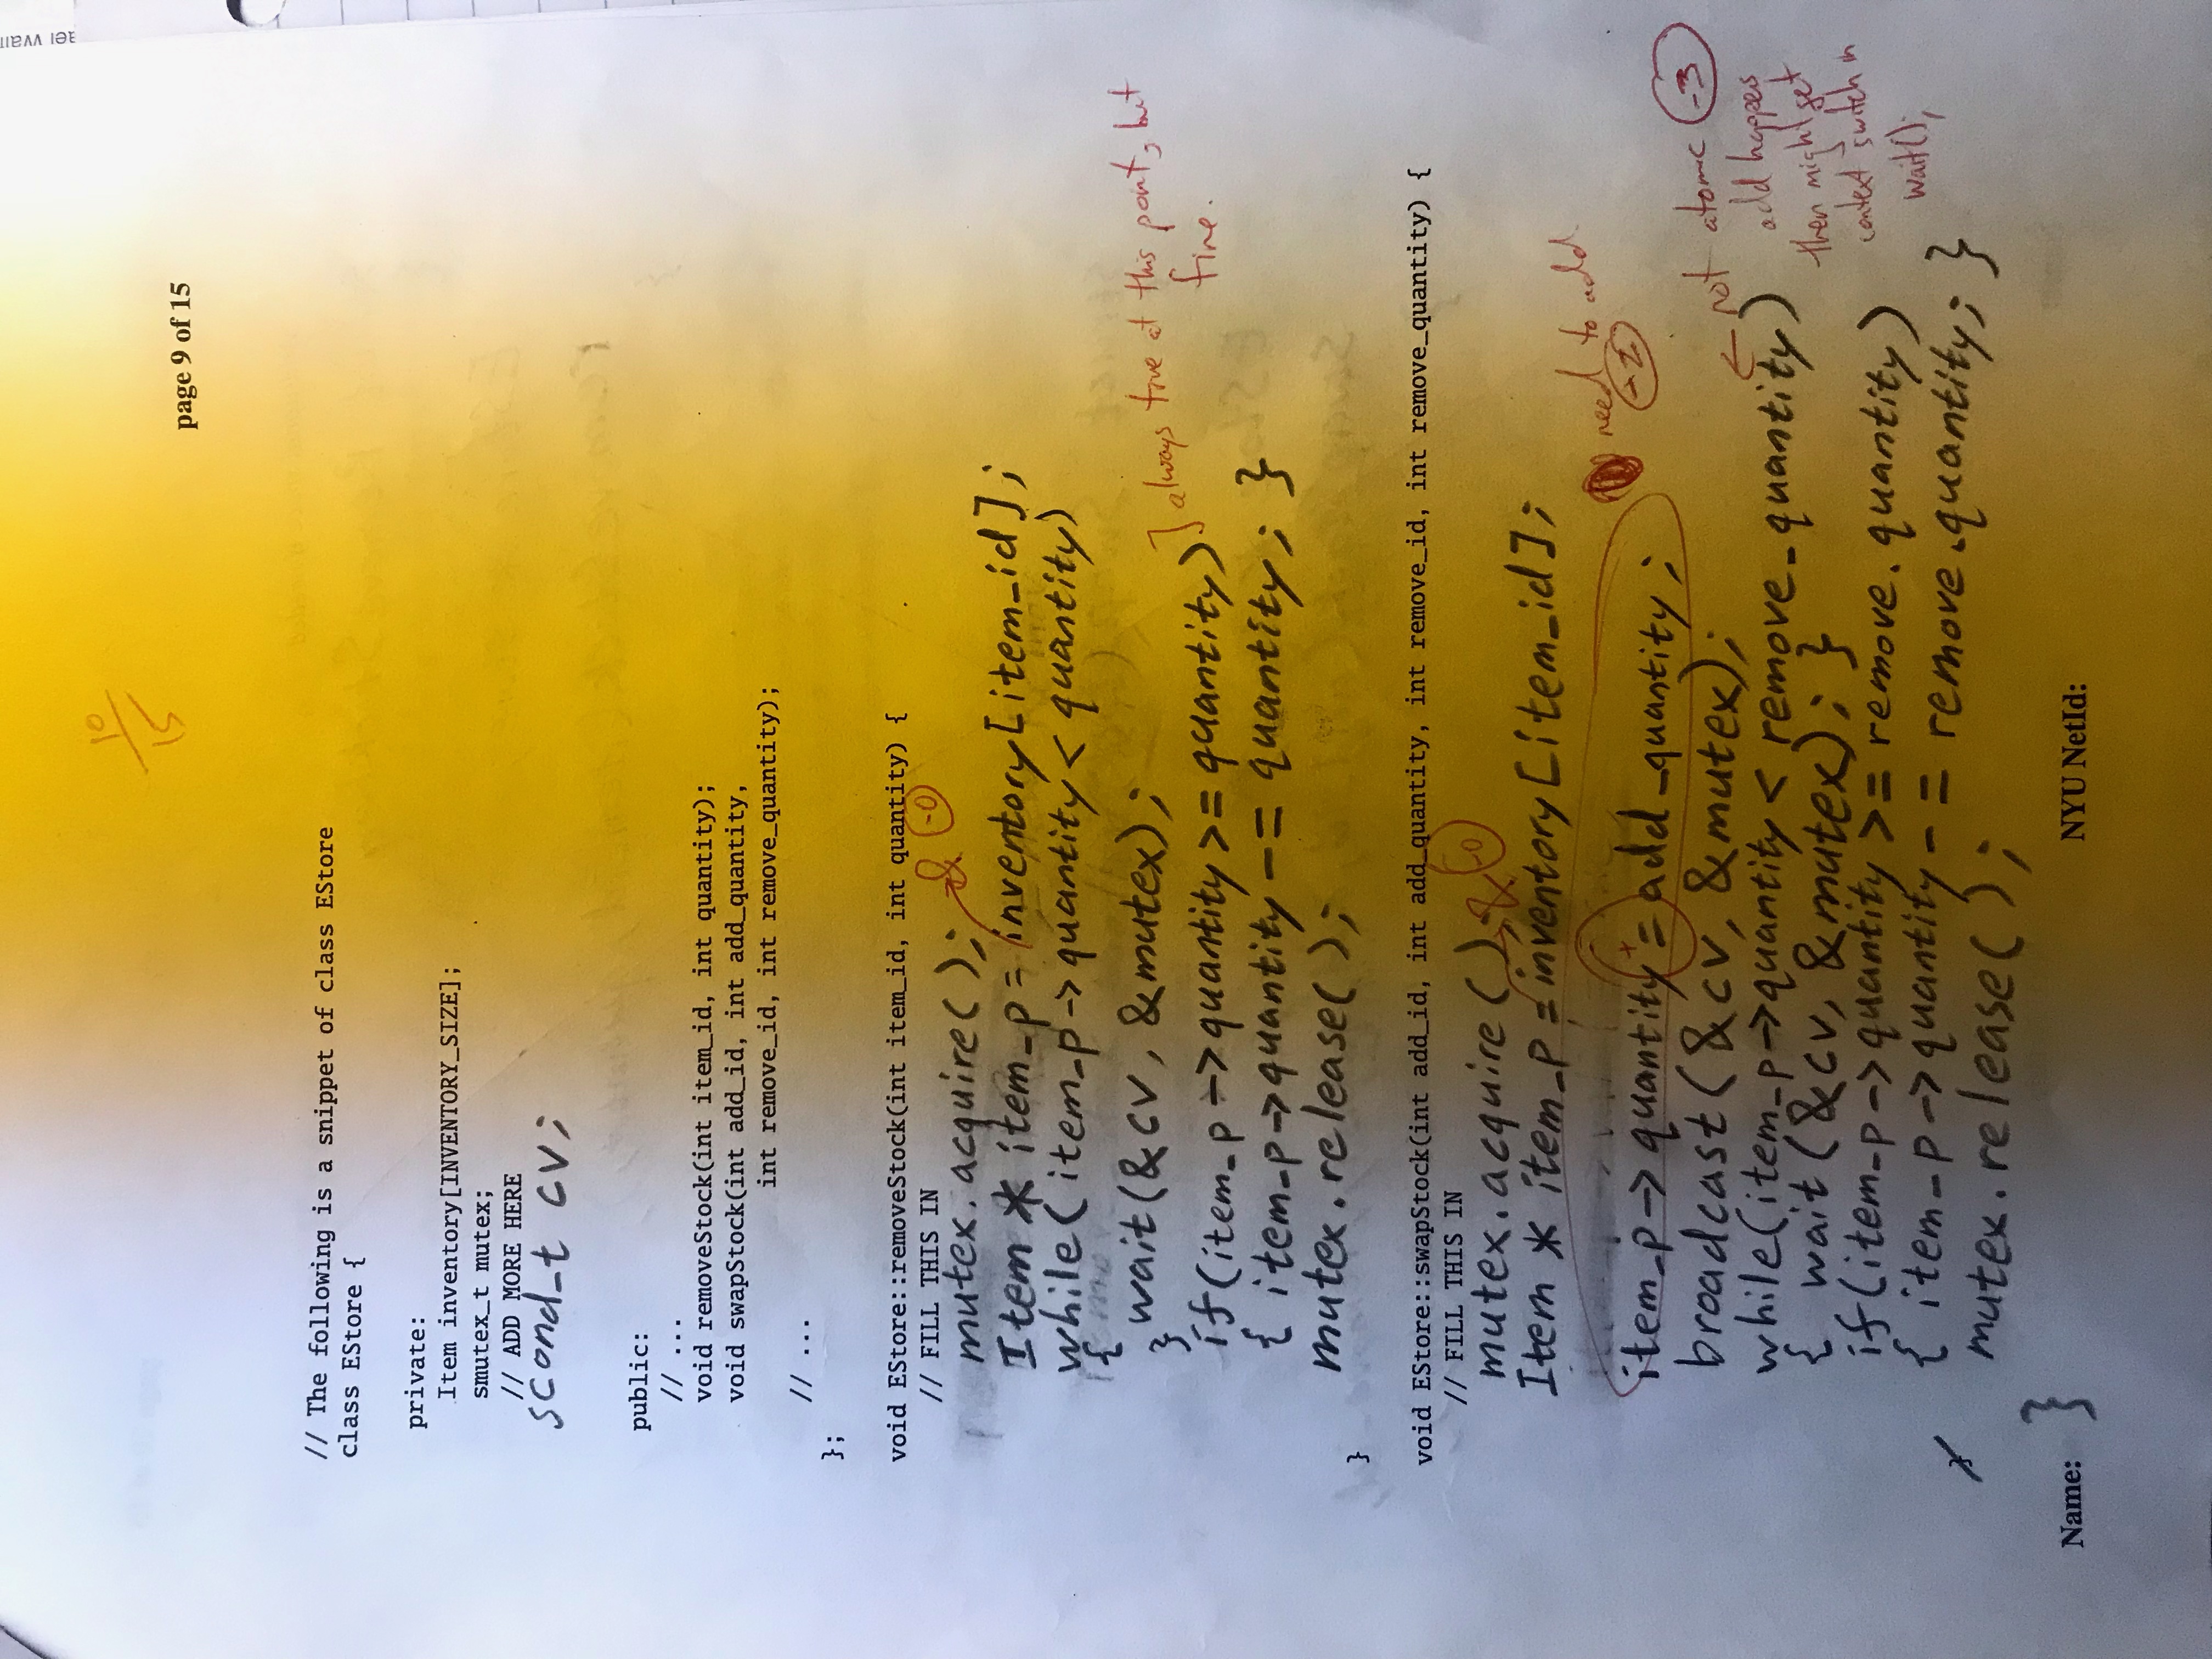 10
15
page 9 of 15
// The following is a snippet of class EStore
class EStore {
private:
Item inventory[INVENTORY_SIZE];
smutex_t mutex;
// ADD MORE HERE
scond_t cv;
public:
// ...
void removeStock(int item_id, int quantity);
void swapStock(int add_id, int add_quantity,
int remove_id, int remove_quantity);
// ...
};
void EStore::removeStock(int item_id, int quantity) {
// FILL THIS IN
mutex.acquire(); & -0
Item * item_p = inventory[item_id];
while(item_p->quantity < quantity)
{
wait(&cv, &mutex);
}
if(item_p->quantity >= quantity) ] always true at this point, but
fine.
{ item_p->quantity -= quantity; }
mutex.release();
}
void EStore::swapStock(int add_id, int add_quantity, int remove_id, int remove_quantity) {
// FILL THIS IN
mutex.acquire(); & -0
Item * item_p = inventory[item_id];
need to add
-2
item_p->quantity += add_quantity;
broadcast(&cv, &mutex);
← not atomic -3
add happens
then might get
context switch in
wait();
while(item_p->quantity < remove_quantity)
{ wait(&cv, &mutex); }
if(item_p->quantity >= remove.quantity)
{ item_p->quantity -= remove.quantity; }
mutex.release();
}
Name:
NYU NetId: